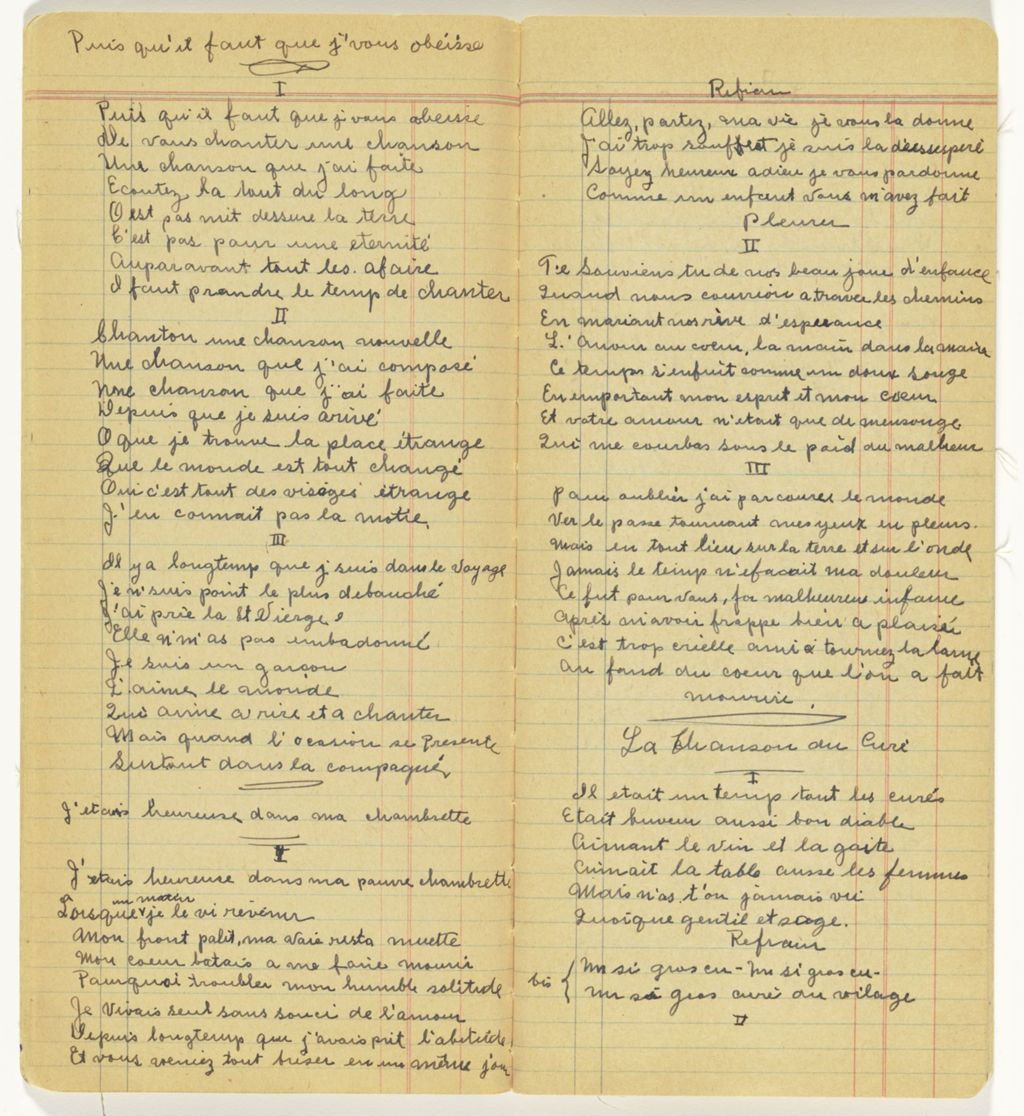 Puis qu'il faut que j'vous obéisse
I
Puis qu'il faut que j vous obeisse
De vous chanter une chanson
Une chanson que j'ai faite
Ecoutez la tout du long
O est pas mit dessure la terre
C'est pas pour une eternité
Auparavant tout les afaire
I faut prandre le temp de chanter
II
Chanton une chanson nouvelle
Une chanson que j'ai composé
Une chanson que j'ai faite
Depuis que je suis arivé
O que je trouve la place étrange
Que le monde est tout changé
Oui c'est tout des visages étrange
J'en connait pas la motié
III
Il y a longtemp que j suis dans le voyage
Je n'suis point le plus debauché
J'ai prie la St Vierge
Elle n'm'as pas embadonné
Je suis un garçon
J'aime le monde
Qui aime a rire et a chanter
Mais quand l'ocasion se Presente
Surtout dans la compagné
J'etais heureuse dans ma chambrette
I
J'etais heureuse dans ma pauvre chambrette
Lorsque un matin je le vi revenir
Mon front palit, ma voie resta muette
Mon coeur batais a me faire mourir
Pourquoi troubler mon humble solitude
Je vivais seul sans souci de l'amour
Depuis longtemp que j'avais prit l'abitude
Et vous veniez tout briser en un même jour
Refrain
Allez, partez, ma vie je vous la donne
J'ai trop souffert je suis la desesuperé
Soyez heureux adieu je vous pardonne
Comme un enfant vous m'avez fait
Pleurer
II
Te souviens tu de nos beau jour d'enfance
Quand nous courrion a traver les chemins
En mariant nos rêve d'esperance
L'Amour au coeur, la main dans la main
Ce temps s'enfuit comme un doux songe
En emportant mon esprit et mon coeur
Et votre amour n'etait que de mensonge
Qui me courbas sous le paid du malheur
III
Pour oublier j'ai parcourer le monde
Ver le passe tournant mes yeux en pleurs.
Mais en tout lieu sur la terre et sur l'onde
Jamais le temp n'efacait ma douleur
Ce fut pour vous, for malheureux infame
Après m'avoir frappe bien a plaisir
C'est trop crielle ami a tournez la lame
Au fond du coeur que l'on a fait
mourire.
La Chanson du Curé
I
Il etait un temp tout les curés
Etait buveur aussi bon diable
Aimant le vin et la gaite
Aimait la table aussi les femmes
Mais n'as t'on jamais vu
Quoique gentil et sage.
Refrain
bis { Un si gros cu - Un si gros cu -
Un si gros curé du vilage
II